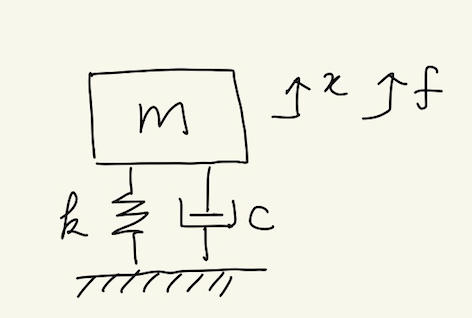 m
x f
k
c